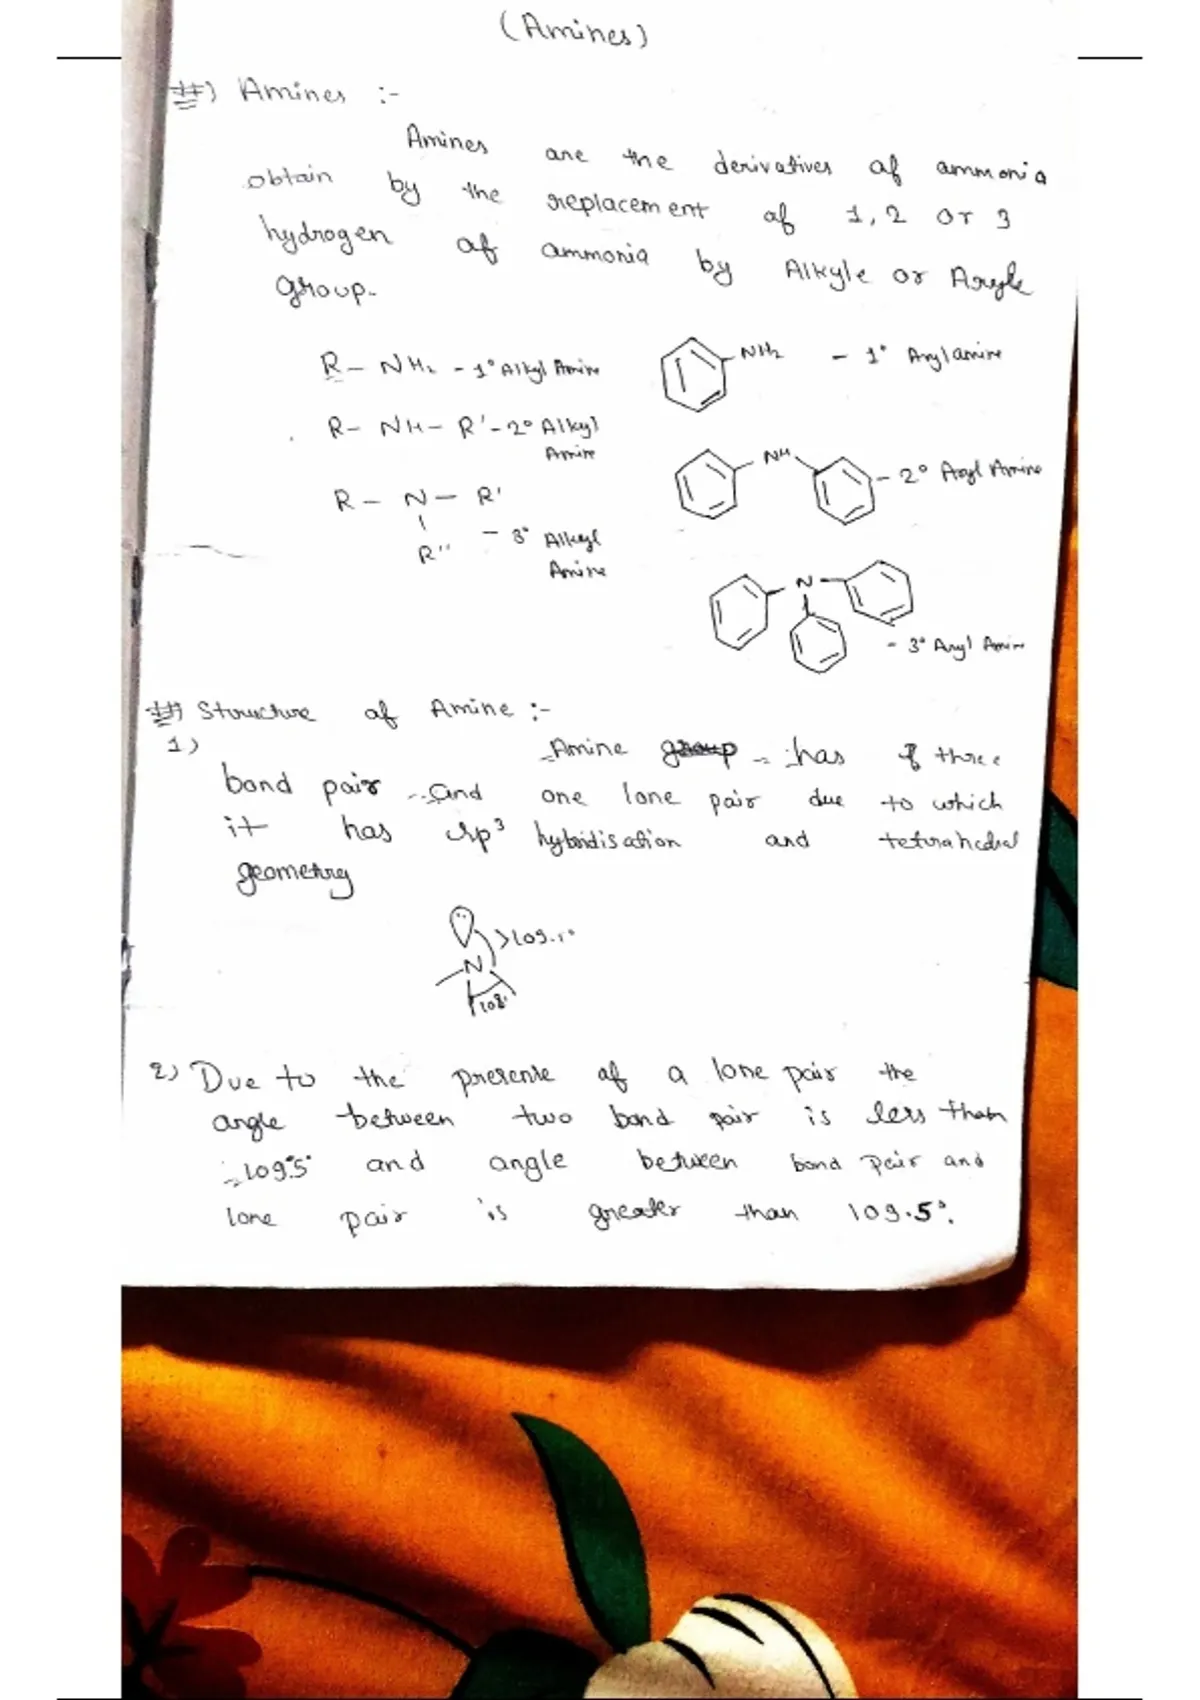 (Amines)
#) Amines :-
Amines are the derivatives of ammonia
obtain by the replacement of 1, 2 or 3
hydrogen of ammonia by Alkyle or Aryle
group.
R - NH₂ - 1° Alkyl Amine
NH₂ - 1° Arylamine
R - NH - R' - 2° Alkyl
Amine
NH - 2° Aryl Amine
R - N - R'
R'' - 3° Alkyl
Amine
N
- 3° Aryl Amine
#) Structure of Amine :-
1) Amine group has three
bond pair and one lone pair due to which
it has sp³ hybridisation and tetrahedral
geometry
>109.5°
N
108°
2) Due to the presente of a lone pair the
angle between two bond pair is less than
109.5° and angle between bond pair and
lone pair is greater than 109.5°.